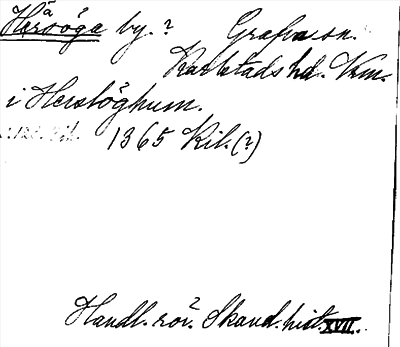 Herööga by. ? Grafva sn.
Karlstads hd. Vrm.
i Herslöghum.
1365 Ril. (?)
Handl. rör. ? Skand. hist. XVII.